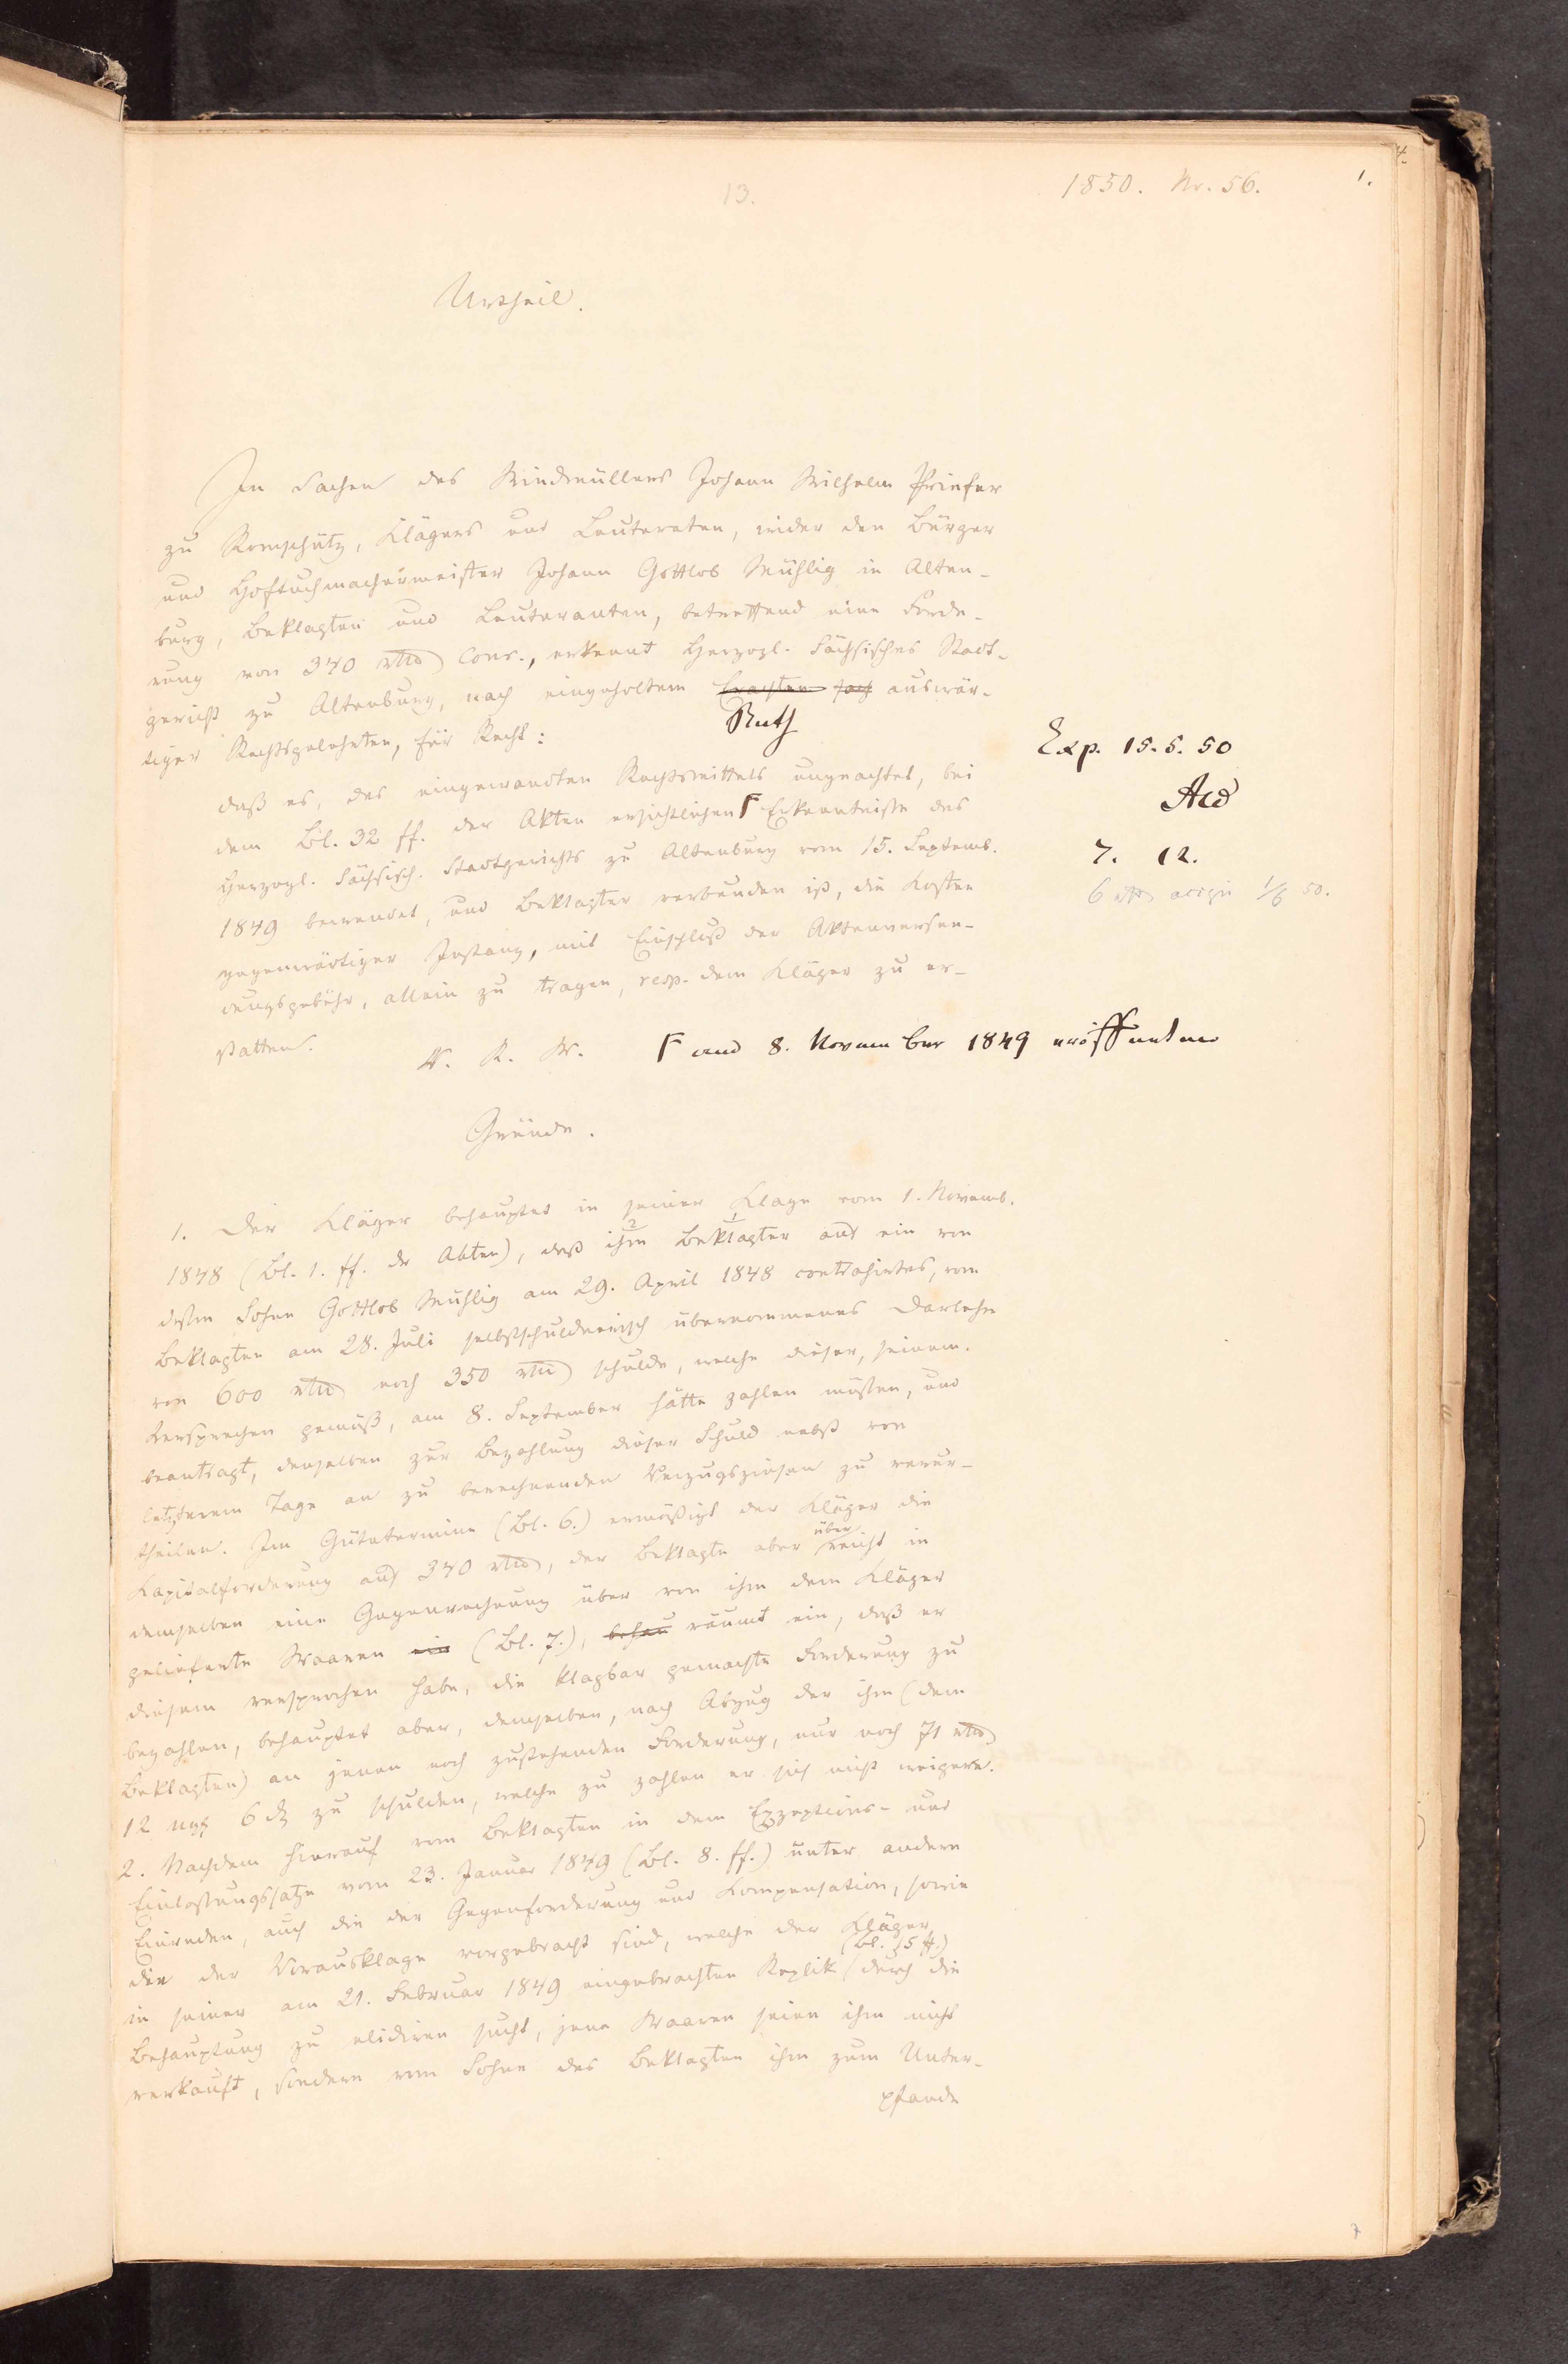 13.
1850. Nr. 56.
1.
Urtheil.
In Sachen des Windmüllers Johann Wilhelm Prieser
zu Romschütz, Klägers und Leuteraten, wider den Bürger
und Hoftuchmachermeister Johann Gottlob Mühlig in Alten-
burg, Beklagten und Leuteranten, betreffend eine Forde-
rung von 340 rtlr Conv., erkennt Herzogl. Sächsisches Stadt-
gericht zu Altenburg, nach eingeholtem auswär-
Rath
tiger Rechtsgelehrten, für Recht:
daß es, des eingewandten Rechtsmittels ungeachtet, bei
dem Bl. 32 ff. der Akten ersichtlichen Γ Erkenntnisse des
Herzogl. Sächsisch. Stadtgerichts zu Altenburg vom 15. Septemb.
1849 bewendet, und Beklagter verbunden ist, die Kosten
gegenwärtiger Instanz, mit Einschluß der Aktenversen-
dungsgebühr, allein zu tragen, resp. dem Kläger zu er-
statten.
V. R. W.
Γ und 8. November 1849 eröffneten
Exp. 15. 5. 50
7. 12.
6 rtlr accepi 1/6 50.
Gründe.
1. Der Kläger behauptet in seiner Klage vom 1. Novemb.
1848 (Bl. 1. ff. der Akten), daß ihm Beklagter aus ein von
dessen Sohne Gottlob Mühlig am 29. April 1848 contrahirtes, vom
Beklagten am 28. Juli selbstschuldnerisch übernommenes Darlehn
von 600 rtlr noch 350 rtlr schulde, welche dieser, seinem
Versprechen gemäß, am 8. September hätte zahlen müssen, und
beantragt, denselben zur Bezahlung dieser Schuld nebst von
letzterem Tage an zu berechnenden Verzugszinsen zu verur-
theilen. Im Gütetermine (Bl. 6.) ermäßigt der Kläger die
Kapitalforderung auf 340 rtlr, der Beklagte aber überreicht in
demselben eine Gegenrechnung über von ihm dem Kläger
gelieferte Waaren ein (Bl. 7.), behau räumt ein, daß er
diesem versprochen habe, die klagbar gemachte Forderung zu
bezahlen, behauptet aber, demselben, nach Abzug der ihm (dem
Beklagten) an jenen noch zustehenden Forderung, nur noch 71 rtlr
12 ngr 6 d zu schulden, welche zu zahlen er sich nicht weigere.
2. Nachdem hierauf vom Beklagten in dem Exzeptions- und
Einlassungssatze vom 23. Januar 1849 (Bl. 8. ff.) unter andern
Einreden, auch die der Gegenforderung und Kompensation, sowie
die der Vorausklage vorgebracht sind, welche der Kläger
in seiner am 21. Februar 1849 eingebrachten Replik (Bl. 15 ff.) durch die
Behauptung zu elidiren sucht, jene Waaren seien ihm nicht
verkauft, sondern vom Sohne des Beklagten ihm zum Unter-
pfande